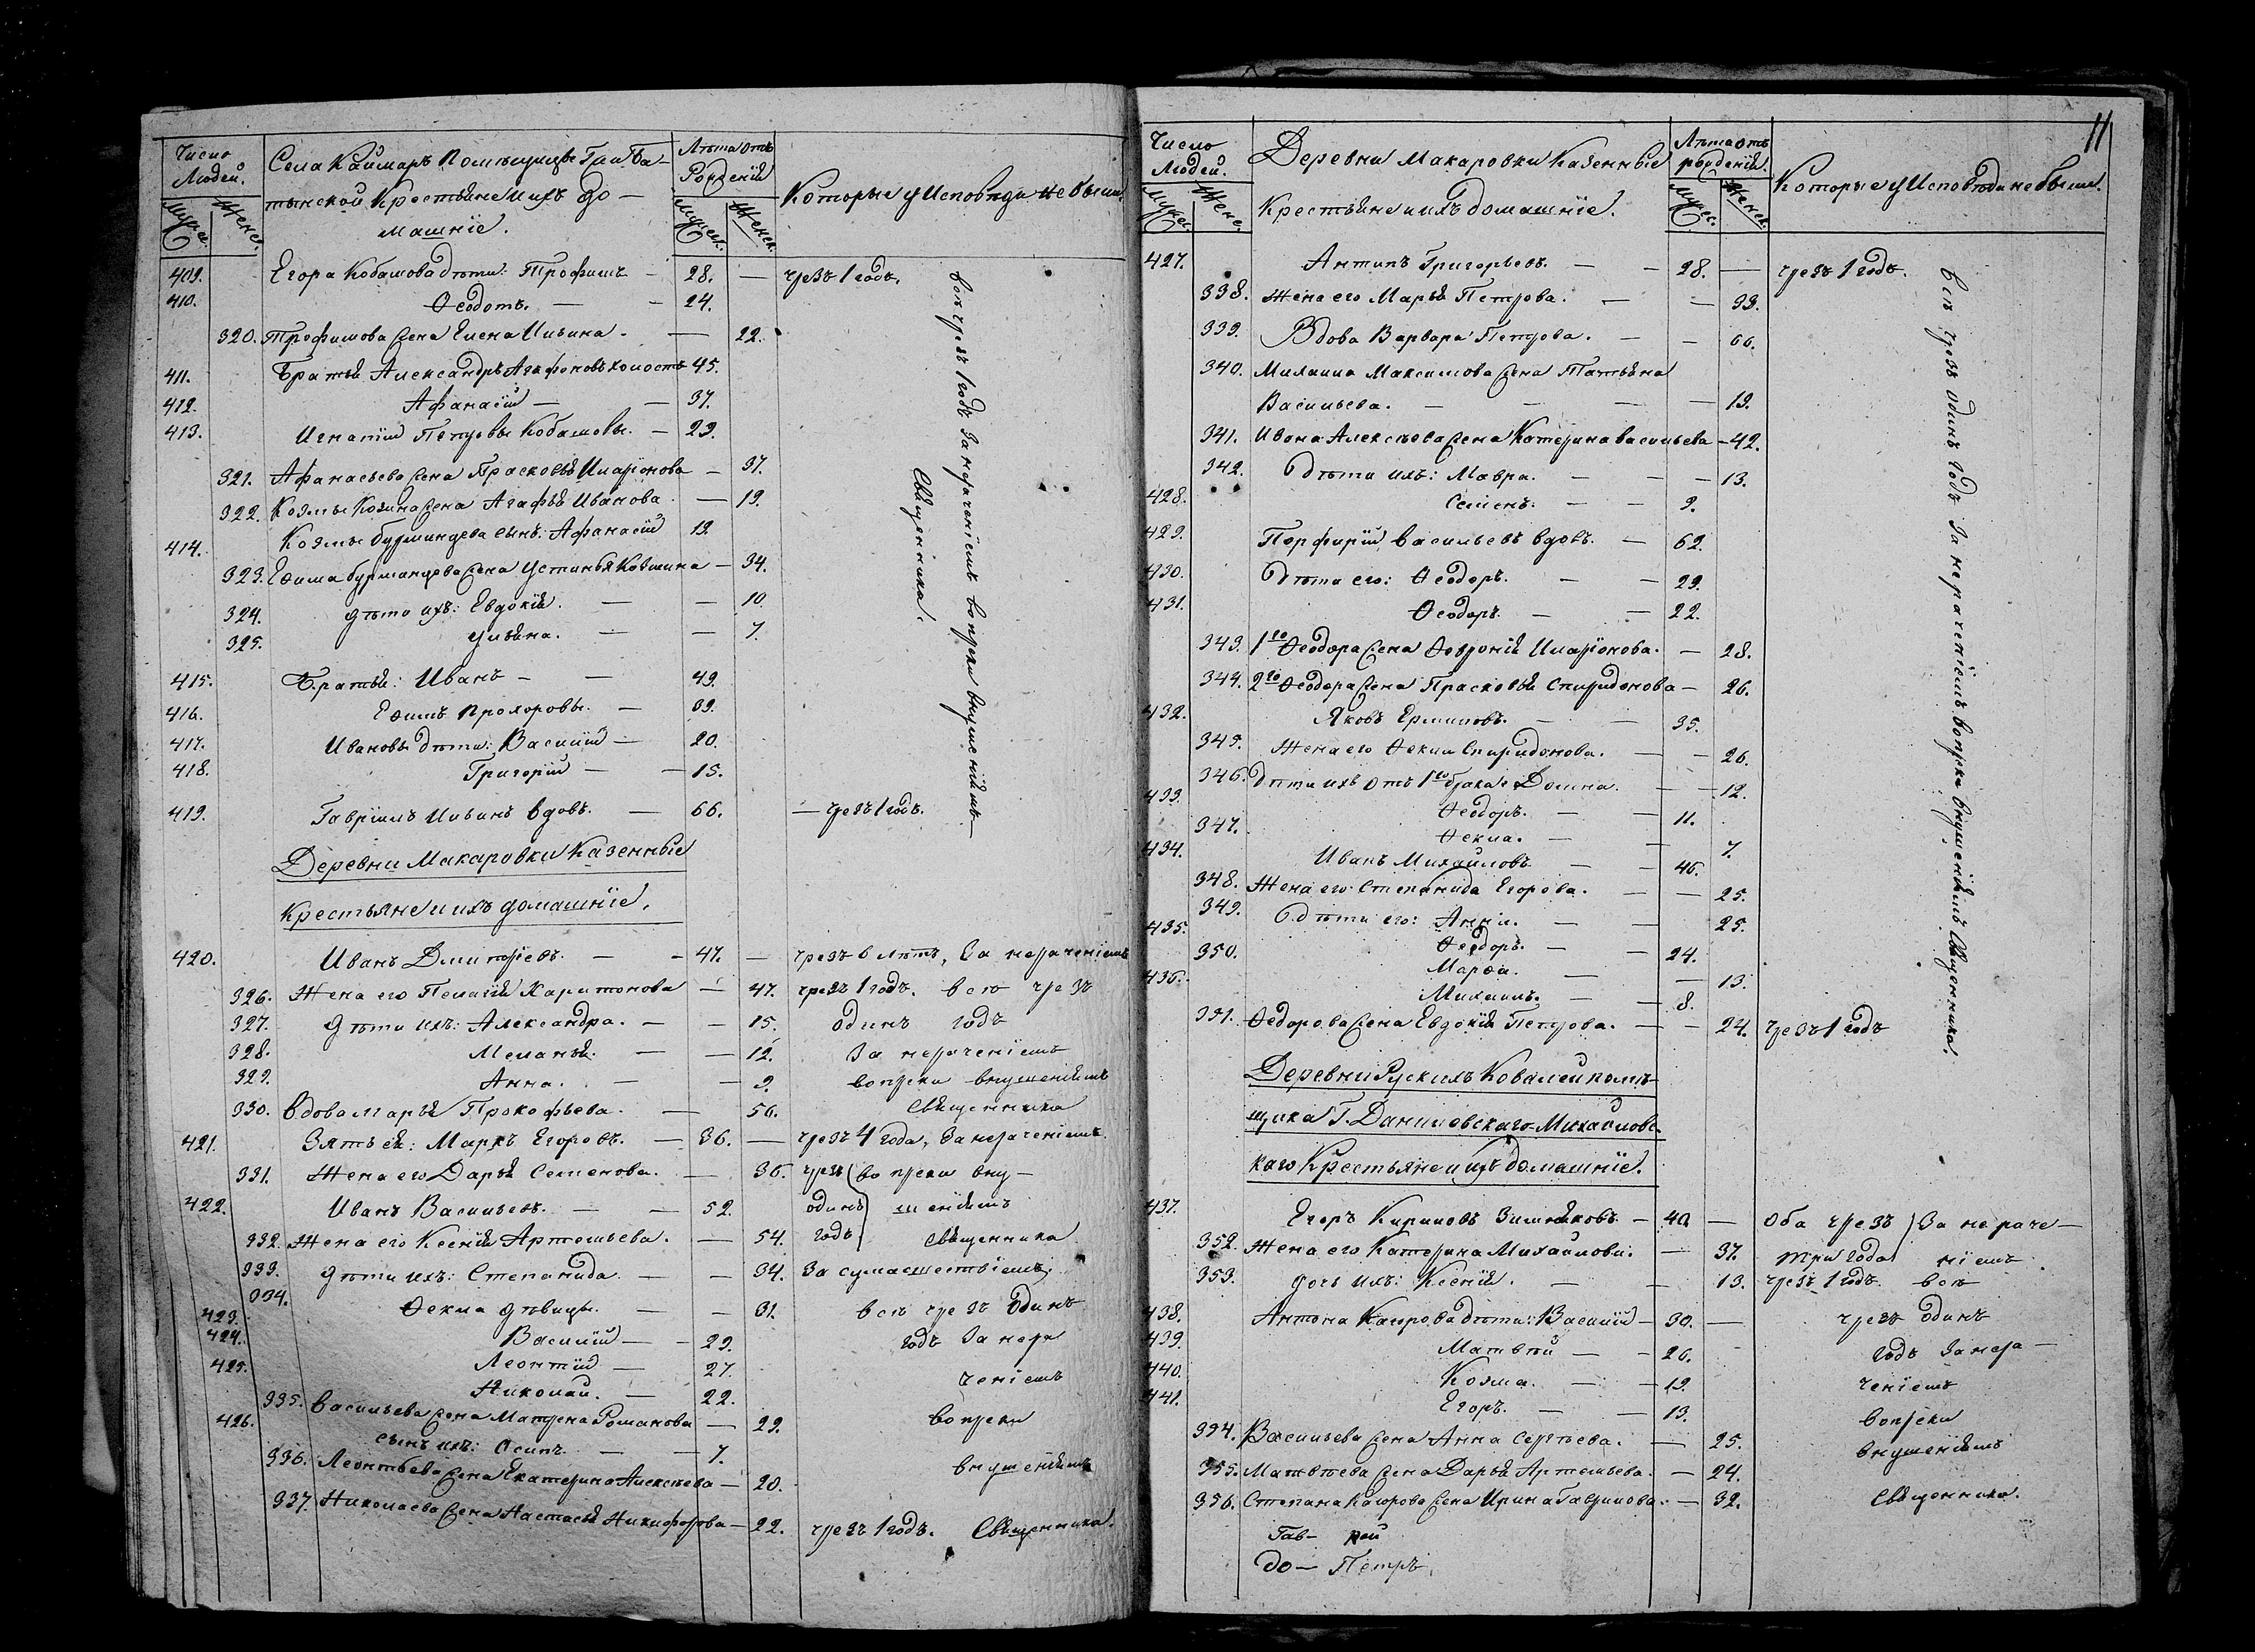 Число Людей.
Мужес. Женс.
Села Каймаръ Помѣщицы Гал Ба-
тынской Крестьяне ихъ до-
машніе.
Лѣта отъ Рожденія
Мужеск. Женск.
Которые у Исповѣди не были
409. Егора Кобашова дѣти: Трофимъ — 28. — чрезъ 1 годъ.
410. Ѳеодотъ. — — 24.
320. Трофимова жена Елена Ильина. — 22.
411. Братья Александръ холостъ 45.
412. Афанасій — — 37.
413. Игнатій Петровы Кобашовы. — 29.
321. Афанасьева жена Прасковья Иларіонова — 37.
322. Козмы жена Агафья Иванова. — 19.
414. Козмы Бурмицева сынъ: Афанасій 19.
323. Еѳима Бурмицева жена Устинья — 34.
324. дѣти ихъ: Евдокія. — — 10.
325. Ульяна. — — 7.
415. Братья: Иванъ — — 49.
416. Еѳимъ Прохоровы. — 39.
417. Ивановы дѣти: Василій — 20.
418. Григорій — — 15.
419. Гавріилъ Ильинъ вдовъ. — 66. — чрезъ 1 годъ.
всѣ чрезъ 1 годъ За нераченіемъ вопреки внушеніямъ
Священника.
Деревни Макаровки Казенные
Крестьяне и ихъ домашніе.
420. Иванъ Дмитріевъ. — — 47. — чрезъ 6 лѣтъ, За нераченіемъ
326. Жена его Пелагія Харитонова — 47. чрезъ 1 годъ. всѣ чрезъ
327. дѣти ихъ: Александра. — — 15. одинъ годъ
328. Меланья. — — 12. За нераченіемъ
329. Анна. — — 9. вопреки внушеніямъ
330. Вдова Марья Прокофьева. — 56. Священника
421. Зять ея: Маркъ Егоровъ. — 36. — чрезъ 4 года, За нераченіемъ
331. Жена его Дарья Семенова. — 36. чрезъ вопреки вну-
422. Иванъ Васильевъ. — — 52. одинъ шеніямъ
332. Жена его Ксенія Артемьева. — 54. годъ Священника
333. дѣти ихъ: Степанида. — — 34. За сумасшествіемъ
334. Ѳекла дѣвицы. — — 31. всѣ чрезъ Одинъ
423. Василій — — 29. годъ За нера
424. Леонтій — 27. ченіемъ
425. Николай. — 22.
335. Васильева жена Матрена Романова — 29. вопреки
426. сынъ ихъ: Осипъ. — — 7.
336. Леонтьева жена Екатерина Алексѣева — 20. внушеніямъ
337. Николаева жена Настасья Никифорова — 22. чрезъ 1 годъ. Священника.
11
Число Людей.
Мужес. Женс.
Деревни Макаровки Казенные
Крестьяне и ихъ домашніе.
Лѣта отъ рожденія.
Мужес. Женск.
Которые у Исповѣди не были.
427. Антипъ Григорьевъ. — — 28. — чрезъ 1 годъ.
338. Жена его Марья Петрова. — — 33.
339. Вдова Варвара Петрова. — — 66.
340. Михаила Максимова жена Татьяна
Васильева. — — — 19.
341. Ивана Алексѣева жена Катерина Васильева — 42.
342. дѣти ихъ: Мавра. — — — 13.
428. Семенъ. — — 9.
429. Порфирій Васильевъ вдовъ. — 62.
430. дѣти его: Ѳеодоръ. — — 29.
431. Ѳеодоръ. — — 22.
343. 1го Ѳеодора жена Ѳевронія Иларіонова. — 28.
344. 2го Ѳеодора жена Прасковья Спиридонова — 26.
432. Яковъ Ермиловъ. — — 35.
345. Жена его Ѳекла Спиридонова. — — 26.
346. Дѣти ихъ отъ 1го брака: Домна. — — 12.
433. Ѳеодоръ. — — 11.
347. Ѳекла. — — 7.
434. Иванъ Михайловъ — — 46.
348. Жена его Степанида Егорова. — — 25.
349. дѣти его: Анна. — — 25.
435. Ѳеодоръ. — — 24.
350. Марѳа. — — 13.
436. Михаилъ. — — 8.
351. Ѳедорова жена Евдокія Петрова. — — 24. чрезъ 1 годъ
всѣ чрезъ одинъ годъ За нераченіемъ вопреки внушеніямъ Священника.
Деревни Рускихъ Ковалей помѣ-
щика Г. Данилевскаго-Михайловс-
каго Крестьяне и ихъ домашніе.
437. Егоръ Кириловъ Зимняковъ — 40. — Оба чрезъ За нераче-
352. Жена его Катерина Михайлова. — 37. три года ніемъ
353. дочь ихъ: Ксенія. — — 13. чрезъ 1 годъ. всѣ
438. Антона Каюрова дѣти: Василій — 30. — чрезъ одинъ
439. Матвѣй — — 26. годъ За нера-
440. Козма. — — 19. ченіемъ
441. Егоръ. — — 13. вопреки
354. Васильева жена Анна Сергѣева. — 25. внушеніямъ
355. Матвѣева жена Дарья Артемьева. — 24.
356. Степана Каюрова жена Ирина Гаврилова. — 32. Священника.
Гав- рей
до — Петръ.